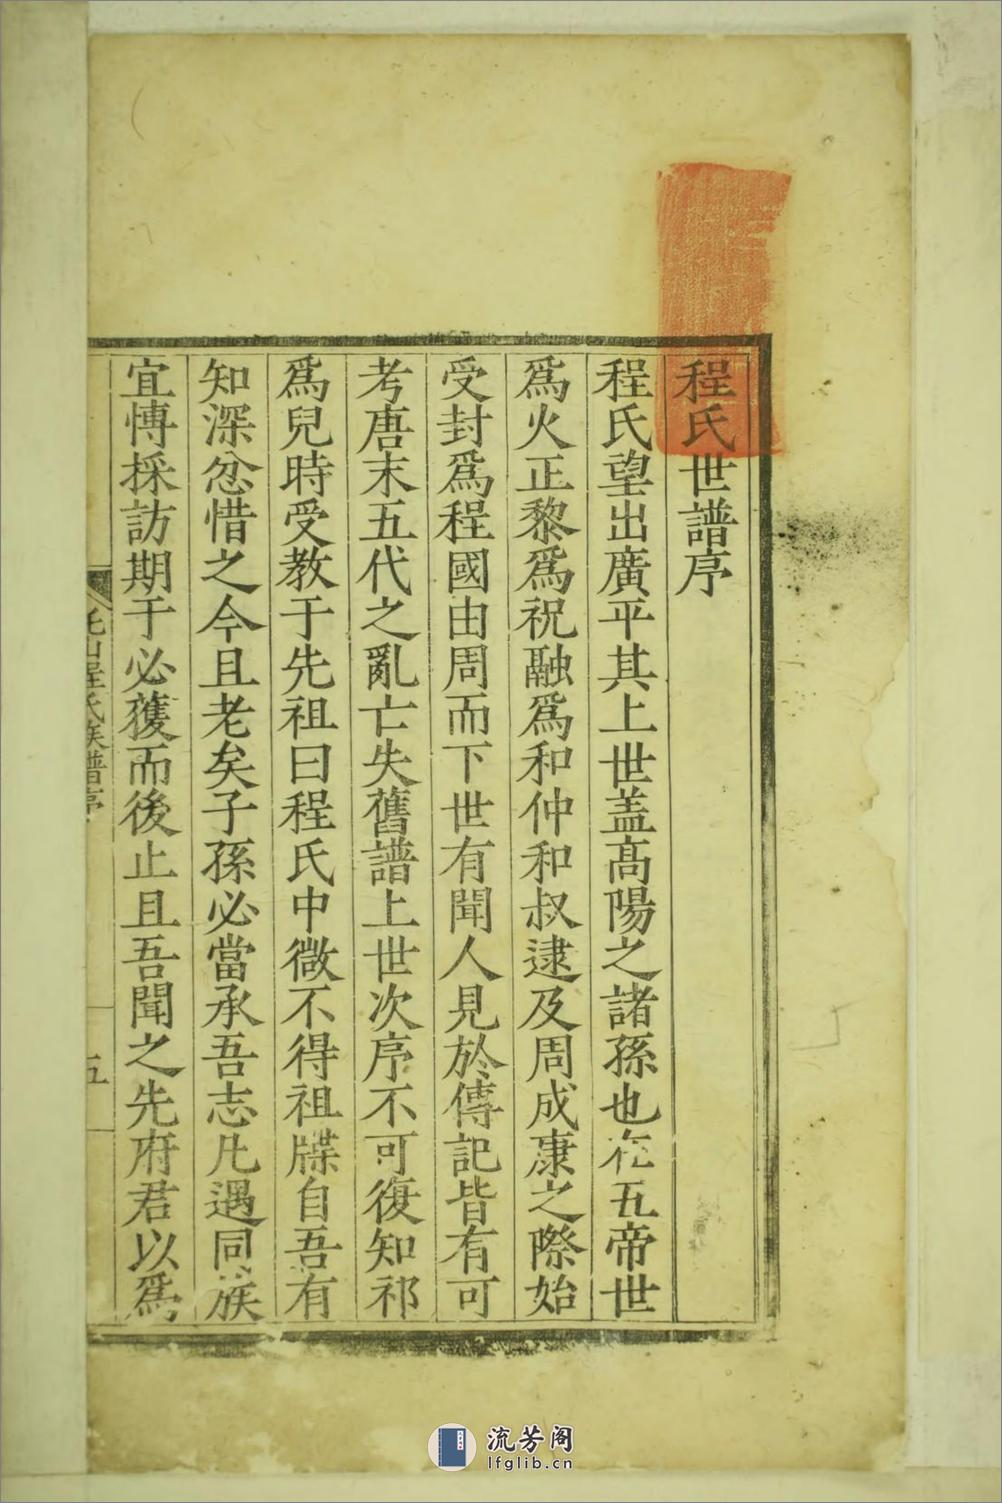 程氏世譜序
程氏望出廣平其上世盖髙陽之諸孫也在五帝世
爲火正黎爲祝融爲和仲和叔逮及周成康之際始
受封爲程國由周而下世有聞人見於傳記皆有可
考唐末五代之亂亡失舊譜上世次序不可復知祁
爲兒時受教于先祖曰程氏中微不得祖牒自吾有
知深忿惜之今且老矣子孫必當承吾志凡遇同族
宜愽採訪期于必獲而後止且吾聞之先府君以爲
山程氏族譜序
五
流芳阁
lfglib.cn